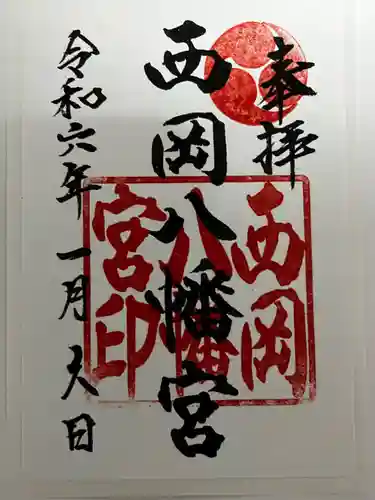 奉拝
西岡八幡宮
西岡
八幡
宮印
令和六年一月大日